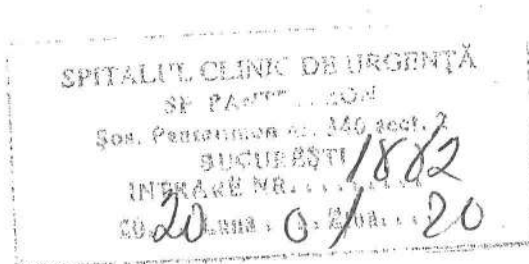 SPITALUL CLINIC DE URGENŢĂ
SF. PANTELIMON
Şos. Pantelimon nr. 340 sect. 2
BUCUREŞTI
INTRARE NR. 1882
20 Luna 01 Ziua 20